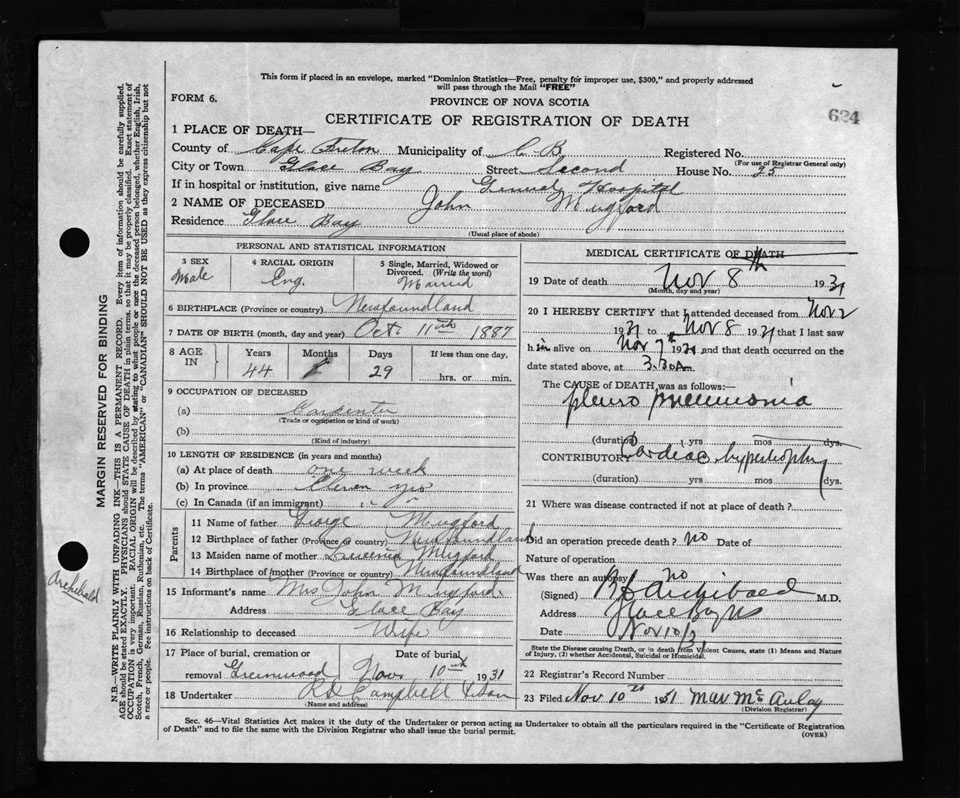 This form if placed in an envelope, marked "Dominion Statistics—Free, penalty for improper use, $300," and properly addressed
will pass through the Mail "FREE"
FORM 6.
PROVINCE OF NOVA SCOTIA
634
CERTIFICATE OF REGISTRATION OF DEATH
1 PLACE OF DEATH—
County of Cape Breton Municipality of C B Registered No.
(For use of Registrar General only)
City or Town Glace Bay Street Second House No. 25
If in hospital or institution, give name General Hospital
2 NAME OF DECEASED John Mugford
Residence Glace Bay
(Usual place of abode)
PERSONAL AND STATISTICAL INFORMATION
3 SEX
Male
4 RACIAL ORIGIN
Eng.
5 Single, Married, Widowed or
Divorced. (Write the word)
Married
6 BIRTHPLACE (Province or country) Newfoundland
7 DATE OF BIRTH (month, day and year) Oct. 11th 1887
8 AGE IN
Years Months Days If less than one day,
44 29 hrs. or min.
9 OCCUPATION OF DECEASED
(a) Carpenter
(Trade or occupation or kind of work)
(b)
(Kind of industry)
10 LENGTH OF RESIDENCE (in years and months)
(a) At place of death one week
(b) In province Eleven yrs
(c) In Canada (if an immigrant)
Parents
11 Name of father George Mugford
12 Birthplace of father (Province or country) Newfoundland
13 Maiden name of mother Mugford
14 Birthplace of mother (Province or country) Newfoundland
15 Informant's name Mrs John Mugford
Address Glace Bay
16 Relationship to deceased Wife
17 Place of burial, cremation or Date of burial
removal Greenwood Nov. 10th 1931
18 Undertaker Campbell & Son
(Name and address)
MEDICAL CERTIFICATE OF DEATH
19 Date of death Nov 8th 1931
(Month, day and year)
20 I HEREBY CERTIFY that I attended deceased from Nov 2
1931 to Nov 8 1931 that I last saw
him alive on Nov 7th 1931 and that death occurred on the
date stated above, at 3.30 am.
The CAUSE of DEATH was as follows:—
pleuro pneumonia
(duration) yrs mos dys.
CONTRIBUTORY Cardiac hypertrophy
(duration) yrs mos dys.
21 Where was disease contracted if not at place of death?
Did an operation precede death? no Date of
Nature of operation
Was there an autopsy no
(Signed) Archibald M.D.
Address Glace Bay NS
Date Nov 10/31
State the Disease causing Death, or in death from Violent Causes, state (1) Means and Nature
of Injury, (2) whether Accidental, Suicidal or Homicidal.
22 Registrar's Record Number
23 Filed Nov 10th 1931 McAulay
(Division Registrar)
Sec. 46—Vital Statistics Act makes it the duty of the Undertaker or person acting as Undertaker to obtain all the particulars required in the "Certificate of Registration
of Death" and to file the same with the Division Registrar who shall issue the burial permit.
(OVER)
MARGIN RESERVED FOR BINDING
N.B.—WRITE PLAINLY WITH UNFADING INK—THIS IS A PERMANENT RECORD. Every item of information should be carefully supplied.
AGE should be stated EXACTLY. PHYSICIANS should STATE CAUSE OF DEATH in plain terms, so that it may be properly classified. Exact statement of
OCCUPATION is very important. RACIAL ORIGIN will be described by stating to what people or race the deceased person belonged, whether English, Irish,
Scotch, French, German, Russian, Ruthenian, etc. The terms "AMERICAN" or "CANADIAN" SHOULD NOT BE USED as they express citizenship but not
a race or people. Fee instructions on back of Certificate.
Archibald